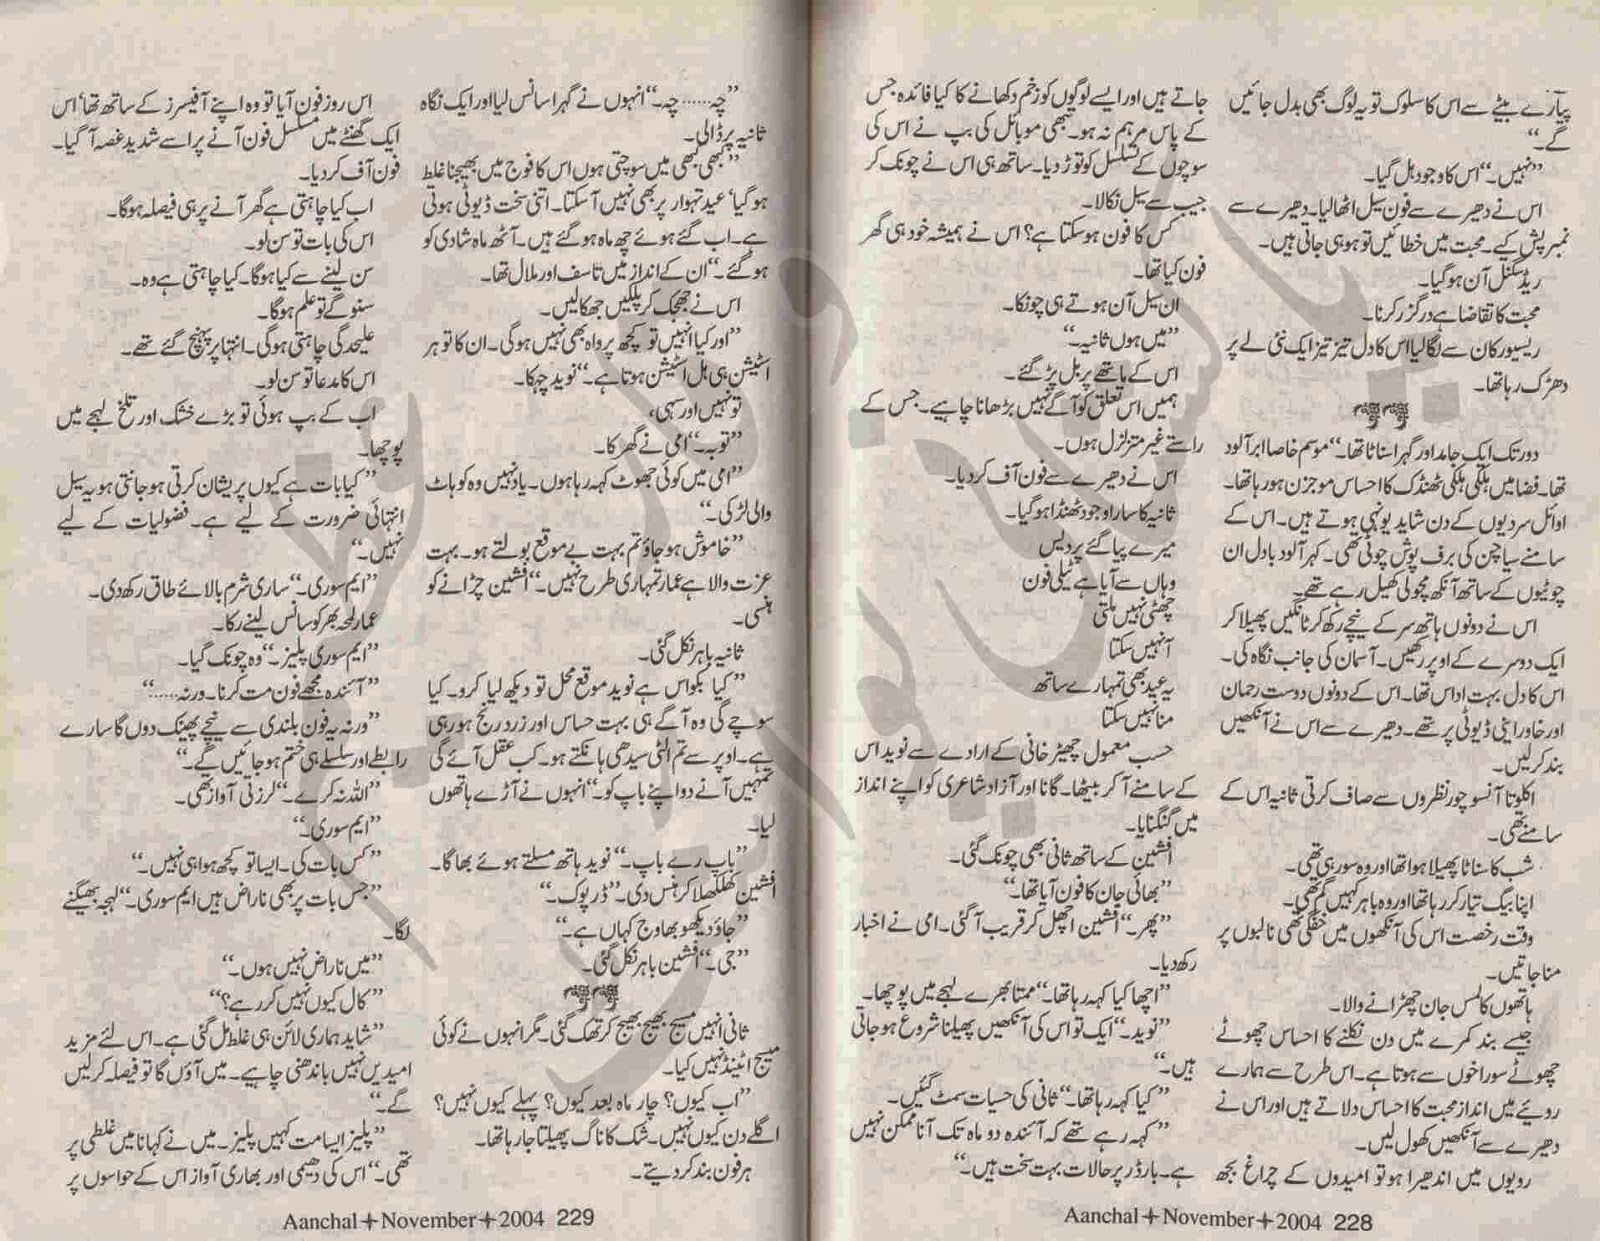 پیارے بیٹے سے اس کا سلوک تو یہ لوگ بھی بدل جائیں
گے۔“
”نہیں۔“ اس کا وجود ہل گیا۔
اس نے دھیرے سے فون سیل اٹھا لیا۔ دھیرے سے
نمبر پش کیے۔ محبت میں خطائیں تو ہو ہی جاتی ہیں۔
ریڈ سگنل آن ہو گیا۔
محبت کا تقاضا ہے درگزر کرنا۔
ریسیور کان سے لگا لیا اس کا دل تیز تیز ایک نئی لے پر
دھڑک رہا تھا۔
دور تک ایک جامد اور گہرا سناٹا تھا۔“ موسم خاصا ابر آلود
تھا۔ فضا میں ہلکی ہلکی ٹھنڈک کا احساس موجزن ہو رہا تھا۔
اوائل سردیوں کے دن شاید یونہی ہوتے ہیں۔ اس کے
سامنے سیاچن کی برف پوش چوٹی تھی۔ کہر آلود بادل ان
چوٹیوں کے ساتھ آنکھ مچولی کھیل رہے تھے۔
اس نے دونوں ہاتھ سر کے نیچے رکھ کر ٹانگیں پھیلا کر
ایک دوسرے کے اوپر رکھیں۔ آسمان کی جانب نگاہ کی۔
اس کا دل بہت اداس تھا۔ اس کے دونوں دوست رحمان
اور خاور اپنی ڈیوٹی پر تھے۔ دھیرے سے اس نے آنکھیں
بند کر لیں۔
اکلوتا آنسو چور نظروں سے صاف کرتی ثانیہ اس کے
سامنے تھی۔
شب کا سناٹا پھیلا ہوا تھا اور وہ سو رہی تھی۔
اپنا بیگ تیار کر رہا تھا اور وہ باہر کہیں گم تھی۔
وقت رخصت اس کی آنکھوں میں خفگی تھی نا لبوں پر
مناجاتیں۔
ہاتھوں کا لمس جان چھڑانے والا۔
جیسے بند کمرے میں دن نکلنے کا احساس چھوٹے
چھوٹے سوراخوں سے ہوتا ہے۔ اس طرح سے ہمارے
رویئے میں انداز محبت کا احساس دلاتے ہیں اور اس نے
دھیرے سے آنکھیں کھول لیں۔
رویوں میں اندھیرا ہو تو امیدوں کے چراغ بجھ
جاتے ہیں اور ایسے لوگوں کو زخم دکھانے کا کیا فائدہ جس
کے پاس مرہم نہ ہو۔ تبھی موبائل کی بپ نے اس کی
سوچوں کے تسلسل کو توڑ دیا۔ ساتھ ہی اس نے چونک کر
جیب سے سیل نکالا۔
کس کا فون ہو سکتا ہے؟ اس نے ہمیشہ خود ہی گھر
فون کیا تھا۔
ان سیل آن ہوتے ہی چونکا۔
”میں ہوں ثانیہ۔“
اس کے ماتھے پر بل پڑ گئے۔
ہمیں اس تعلق کو آگے نہیں بڑھانا چاہیے۔ جس کے
راستے غیر متزلزل ہوں۔
اس نے دھیرے سے فون آف کر دیا۔
ثانیہ کا سارا وجود ٹھنڈا ہو گیا۔
میرے پیا گئے پردیس
وہاں سے آیا ہے ٹیلی فون
چھٹی نہیں ملتی
آ نہیں سکتا
یہ عید بھی تمہارے ساتھ
منا نہیں سکتا
حسب معمول چھیڑ خانی کے ارادے سے نوید اس
کے سامنے آ کر بیٹھا۔ گانا اور آزاد شاعری کو اپنے انداز
میں گنگنایا۔
افشین کے ساتھ ثانی بھی چونک گئی۔
”بھائی جان کا فون آیا تھا۔“
”پھر۔“ افشین اچھل کر قریب آ گئی۔ امی نے اخبار
رکھ دیا۔
”اچھا کیا کہہ رہا تھا۔“ ممتا بھرے لہجے میں پوچھا۔
”نوید۔“ ایک تو اس کی آنکھیں پھیلنا شروع ہو جاتی
ہیں۔“
”کیا کہہ رہا تھا۔“ ثانی کی حسیات سمٹ گئیں۔
”کہہ رہے تھے کہ آئندہ دو ماہ تک آنا ممکن نہیں
ہے۔ بارڈر پر حالات بہت سخت ہیں۔“
Aanchal✦November✦2004 228
”چہ...... چہ۔“ انہوں نے گہرا سانس لیا اور ایک نگاہ
ثانیہ پر ڈالی۔
”کبھی کبھی میں سوچتی ہوں اس کا فوج میں بھیجنا غلط
ہو گیا‘ عید تہوار پر بھی نہیں آ سکتا۔ اتنی سخت ڈیوٹی ہوتی
ہے۔ اب گئے ہوئے چھ ماہ ہو گئے ہیں۔ آٹھ ماہ شادی کو
ہو گئے۔“ ان کے انداز میں تاسف اور ملال تھا۔
اس نے جھجک کر پلکیں جھکا لیں۔
”اور کیا انہیں تو کچھ پرواہ بھی نہیں ہو گی۔ ان کا تو ہر
اسٹیشن ہی ہل اسٹیشن ہوتا ہے۔“ نوید چہکا۔
تو نہیں اور سہی،
”توبہ۔“ امی نے گھرکا۔
”امی میں کوئی جھوٹ کہہ رہا ہوں۔ یاد نہیں وہ کوہاٹ
والی لڑکی۔“
”خاموش ہو جاؤ تم بہت بے موقع بولتے ہو۔ بہت
عزت والا ہے عمار تمہاری طرح نہیں۔“ افشین چڑانے کو
ہنسی۔
ثانیہ باہر نکل گئی۔
”کیا بکواس ہے نوید موقع محل تو دیکھ لیا کرو۔ کیا
سوچے گی وہ آگے ہی بہت حساس اور زرد رنج ہو رہی
ہے۔ اوپر سے تم الٹی سیدھی ہانکتے ہو۔ کب عقل آئے گی
تمہیں آنے دو اپنے باپ کو۔“ انہوں نے آڑے ہاتھوں
لیا۔
”باپ رے باپ۔“ نوید ہاتھ مسلتے ہوئے بھاگا۔
افشین کھلکھلا کر ہنس دی۔ ”ڈرپوک۔“
”جاؤ دیکھو بھاوج کہاں ہے۔“
”جی۔“ افشین باہر نکل گئی۔
ثانی انہیں مسیج بھیج بھیج کر تھک گئی۔ مگر انہوں نے کوئی
مسیج اٹینڈ نہیں کیا۔
”اب کیوں؟ چار ماہ بعد کیوں؟ پہلے کیوں نہیں؟
اگلے دن کیوں نہیں۔ شک کا ناگ پھیلتا جا رہا تھا۔
ہر فون بند کر دیتے۔
اس روز فون آیا تو وہ اپنے آفیسرز کے ساتھ تھا‘ اس
ایک گھنٹے میں مسلسل فون آنے پر اسے شدید غصہ آ گیا۔
فون آف کر دیا۔
اب کیا چاہتی ہے گھر آنے پر ہی فیصلہ ہو گا۔
اس کی بات تو سن لو۔
سن لینے سے کیا ہو گا۔ کیا چاہتی ہے وہ۔
سنو گے تو علم ہو گا۔
علیحدگی چاہتی ہو گی۔ انتہا پر پہنچ گئے تھے۔
اس کا مدعا تو سن لو۔
اب کے بپ ہوئی تو بڑے خشک اور تلخ لہجے میں
پوچھا۔
”کیا بات ہے کیوں پریشان کرتی ہو جانتی ہو یہ سیل
انتہائی ضرورت کے لیے ہے۔ فضولیات کے لیے
نہیں۔“
”ایم سوری۔“ ساری شرم بالائے طاق رکھ دی۔
عمار لمحہ بھر کو سانس لینے رکا۔
”ایم سوری پلیز۔“ وہ چونک گیا۔
”آئندہ مجھے فون مت کرنا۔ ورنہ......“
”ورنہ یہ فون بلندی سے نیچے پھینک دوں گا سارے
رابطے اور سلسلے ہی ختم ہو جائیں گے۔“
”اللہ نہ کرے۔“ لرزتی آواز تھی۔
”ایم سوری۔“
”کس بات کی۔ ایسا تو کچھ ہوا ہی نہیں۔“
”جس بات پر بھی ناراض ہیں ایم سوری۔“ لہجہ بھیگنے
لگا۔
”میں ناراض نہیں ہوں۔“
”کال کیوں نہیں کر رہے؟“
”شاید ہماری لائن ہی غلط مل گئی ہے۔ اس لئے مزید
امیدیں نہیں باندھنی چاہیے۔ میں آؤں گا تو فیصلہ کر لیں
گے۔“
”پلیز ایسا مت کہیں پلیز۔ میں نے کہا نا میں غلطی پر
تھی۔“ اس کی دھیمی اور بھاری آواز اس کے حواسوں پر
Aanchal✦November✦2004 229